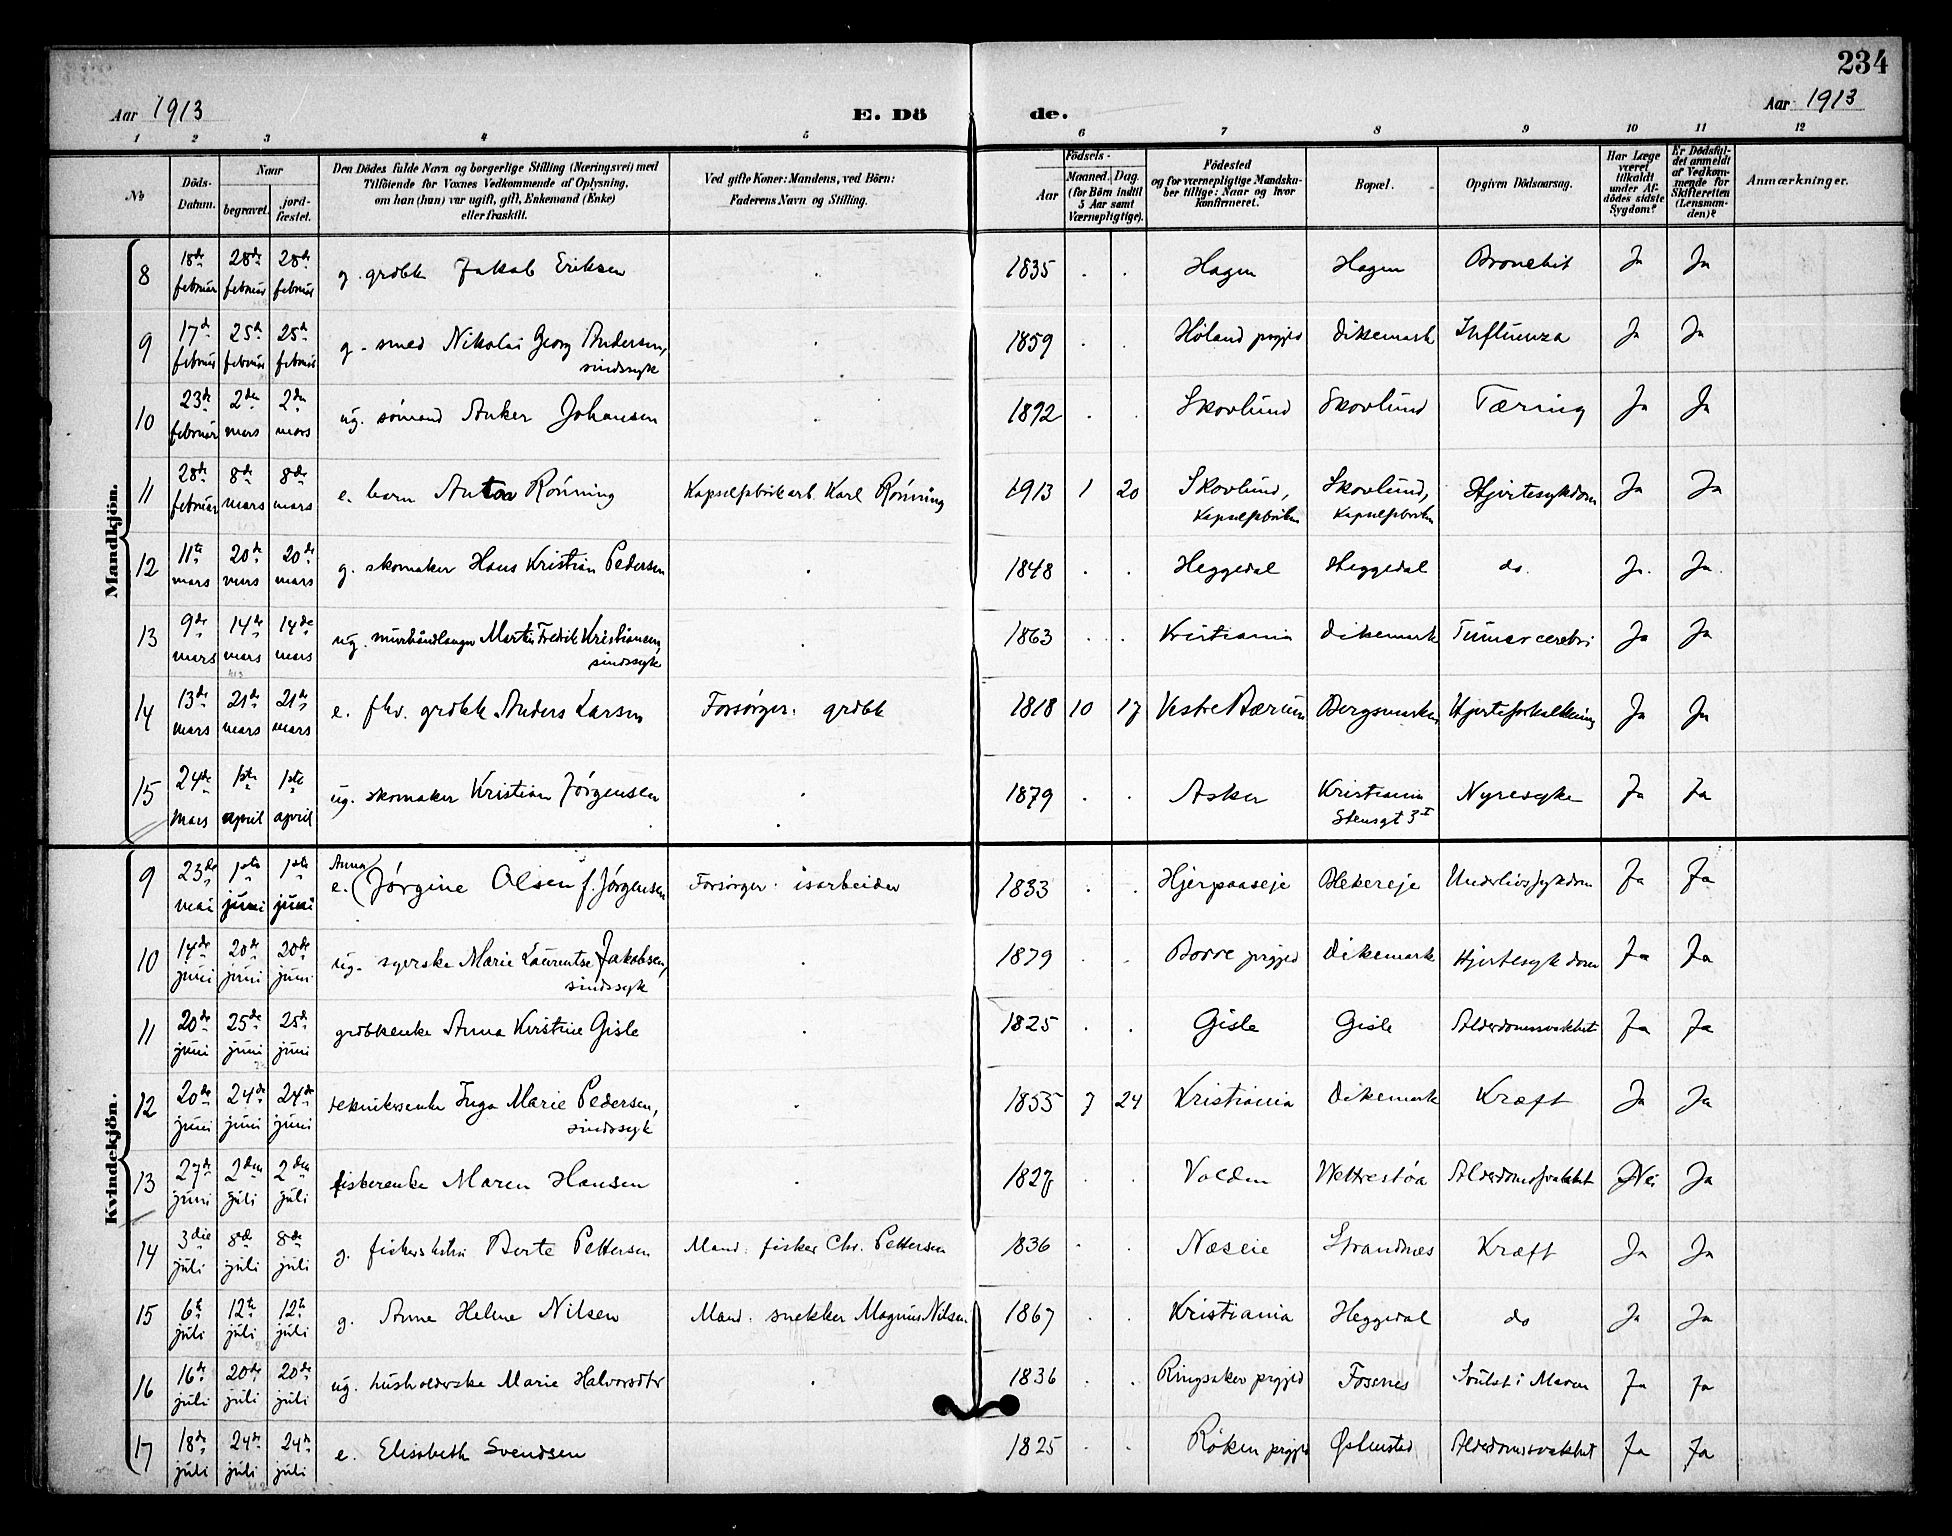 234
Aar 1913
E. Dö
de.
Aar 1913
1 2 3 4 5 6 7 8 9 10 11 12
No
Döds-Datum.
Naar
begravet.
jord-fæstet.
Den Dödes fulde Navn og borgerlige Stilling (Næringsvei) med
Tilföiende for Voxnes Vedkommende af Oplysning,
om han (hun) var ugift, gift, Enkemand (Enke)
eller fraskilt.
Ved gifte Koner: Mandens, ved Börn:
Faderens Navn og Stilling.
Födsels-
Aar
Maaned. Dag.
(for Börn indtil
5 Aar samt
Værnepligtige).
Födested
og for værnepligtige Mandska-
ber tillige: Naar og hvor
konfirmeret.
Bopæl.
Opgiven Dödsaarsag.
Har Læge
været
tilkaldt
under Af-
dödes sidste
Sygdom?
Er Dödsfal-
det anmeldt
af Vedkom-
mende for
Skifteretten
(Lensman-
den)?
Anmærkninger.
Mandkjön.
8 18de februar 28de februar 28de februar g. grdbk Jakob Eriksen 1835 Hagen Hagen Bronchit Ja Ja
9 17d februar 25d februar 25d februar g. smed Nikolai Georg Andersen, sindssyk 1859 Höland prgjed Dikemark Influenza Ja Ja
10 23de februar 2den mars 2den mars ug. sömand Anker Johansen 1892 Skovlund Skovlund Tæring Ja Ja
11 28de februar 8de mars 8de mars e. barn Anton Rönning Kapselfabrikarb. Karl Rönning 1913 1 20 Skovlund, Kapselfabriken Skovlund, Kapselfabriken Hjertesykdom Ja Ja
12 11te mars 20de mars 20de mars g. skomaker Hans Kristian Pedersen 1848 Heggedal Heggedal do. Ja. Ja.
13 9de mars 14de mars 14de mars ug. murhåndlanger Martin Fredrik Kristiansen, sindssyk 1863 Kristiania Dikemark Tumor cerebri Ja Ja
14 13de mars 21de mars 21de mars e. fhv. grdbk Anders Larsen Forsörger: grdbk 1818 10 17 Vestre Bærum Bergsmarken Hjerteforkalkning Ja Ja
15 24de mars 1ste april 1ste april ug. skomaker Kristian Jörgensen 1879 Asker Kristiania Stensgt 3 I Nyresyke Ja Ja
Kvindekjön.
9 23de mai 1ste juni 1ste juni e. (Anna) Jörgine Olsen f. Jörgensen Forsörger: isarbeider 1833 Hjerpaaseje Blekereje Underlivssykdom Ja Ja
10 14de juni 20de juni 20de juni ug. syerske Marie Lauentse Jakobsen, sindssyk 1879 Borre prgjed Dikemark Hjertesykdom Ja Ja
11 20de juni 25de juni 25de juni grdbkenke Anna Kristine Gisle 1825 Gisle Gisle Alderdomssvakhet Ja Ja
12 20de juni 24de juni 24de juni teknikerenke Inga Marie Pedersen, sindssyk 1855 7 24 Kristiania Dikemark Kræft Ja Ja
13 27de juni 2den juli 2den juli fiskerenke Maren Hansen 1827 Volden Vettrestöa Alderdomssvakhet Nei Ja
14 3die juli 8de juli 8de juli g. fiskerskstru Berte Pettersen Mand: fisker Chr. Pettersen 1836 Næseie Strandnæs Kræft Ja Ja
15 6te juli 12te juli 12te juli g. Anne Helene Nilsen Mand: snekker Magnus Nilsen 1867 Kristiania Heggedal do Ja Ja
16 16de juli 20de juli 20de juli ug. husholderske Marie Halvorsdtr 1836 Ringsaker prgjed Fosnes Svulst i Maven Ja Ja
17 18de juli 24de juli 24de juli e. Elisabeth Svendsen 1825 Röken prgjed Østenstad Alderdomssvakhet Ja Ja